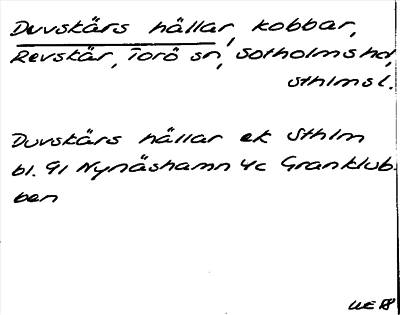 Duvskärs hällar, kobbar,
Revskär, Torö sn, Sotholms hd,
Sthlms l.
Duvskärs hällar ek Sthlm
bl. 91 Nynäshamn 4c Granklub-
ben